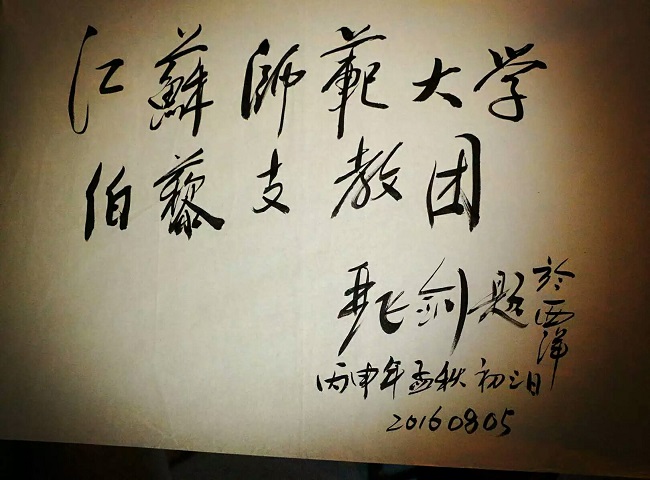 江蘇師範大学
伯藜支教团
井飞剑题
於西洋
丙申年孟秋初三日
20160805